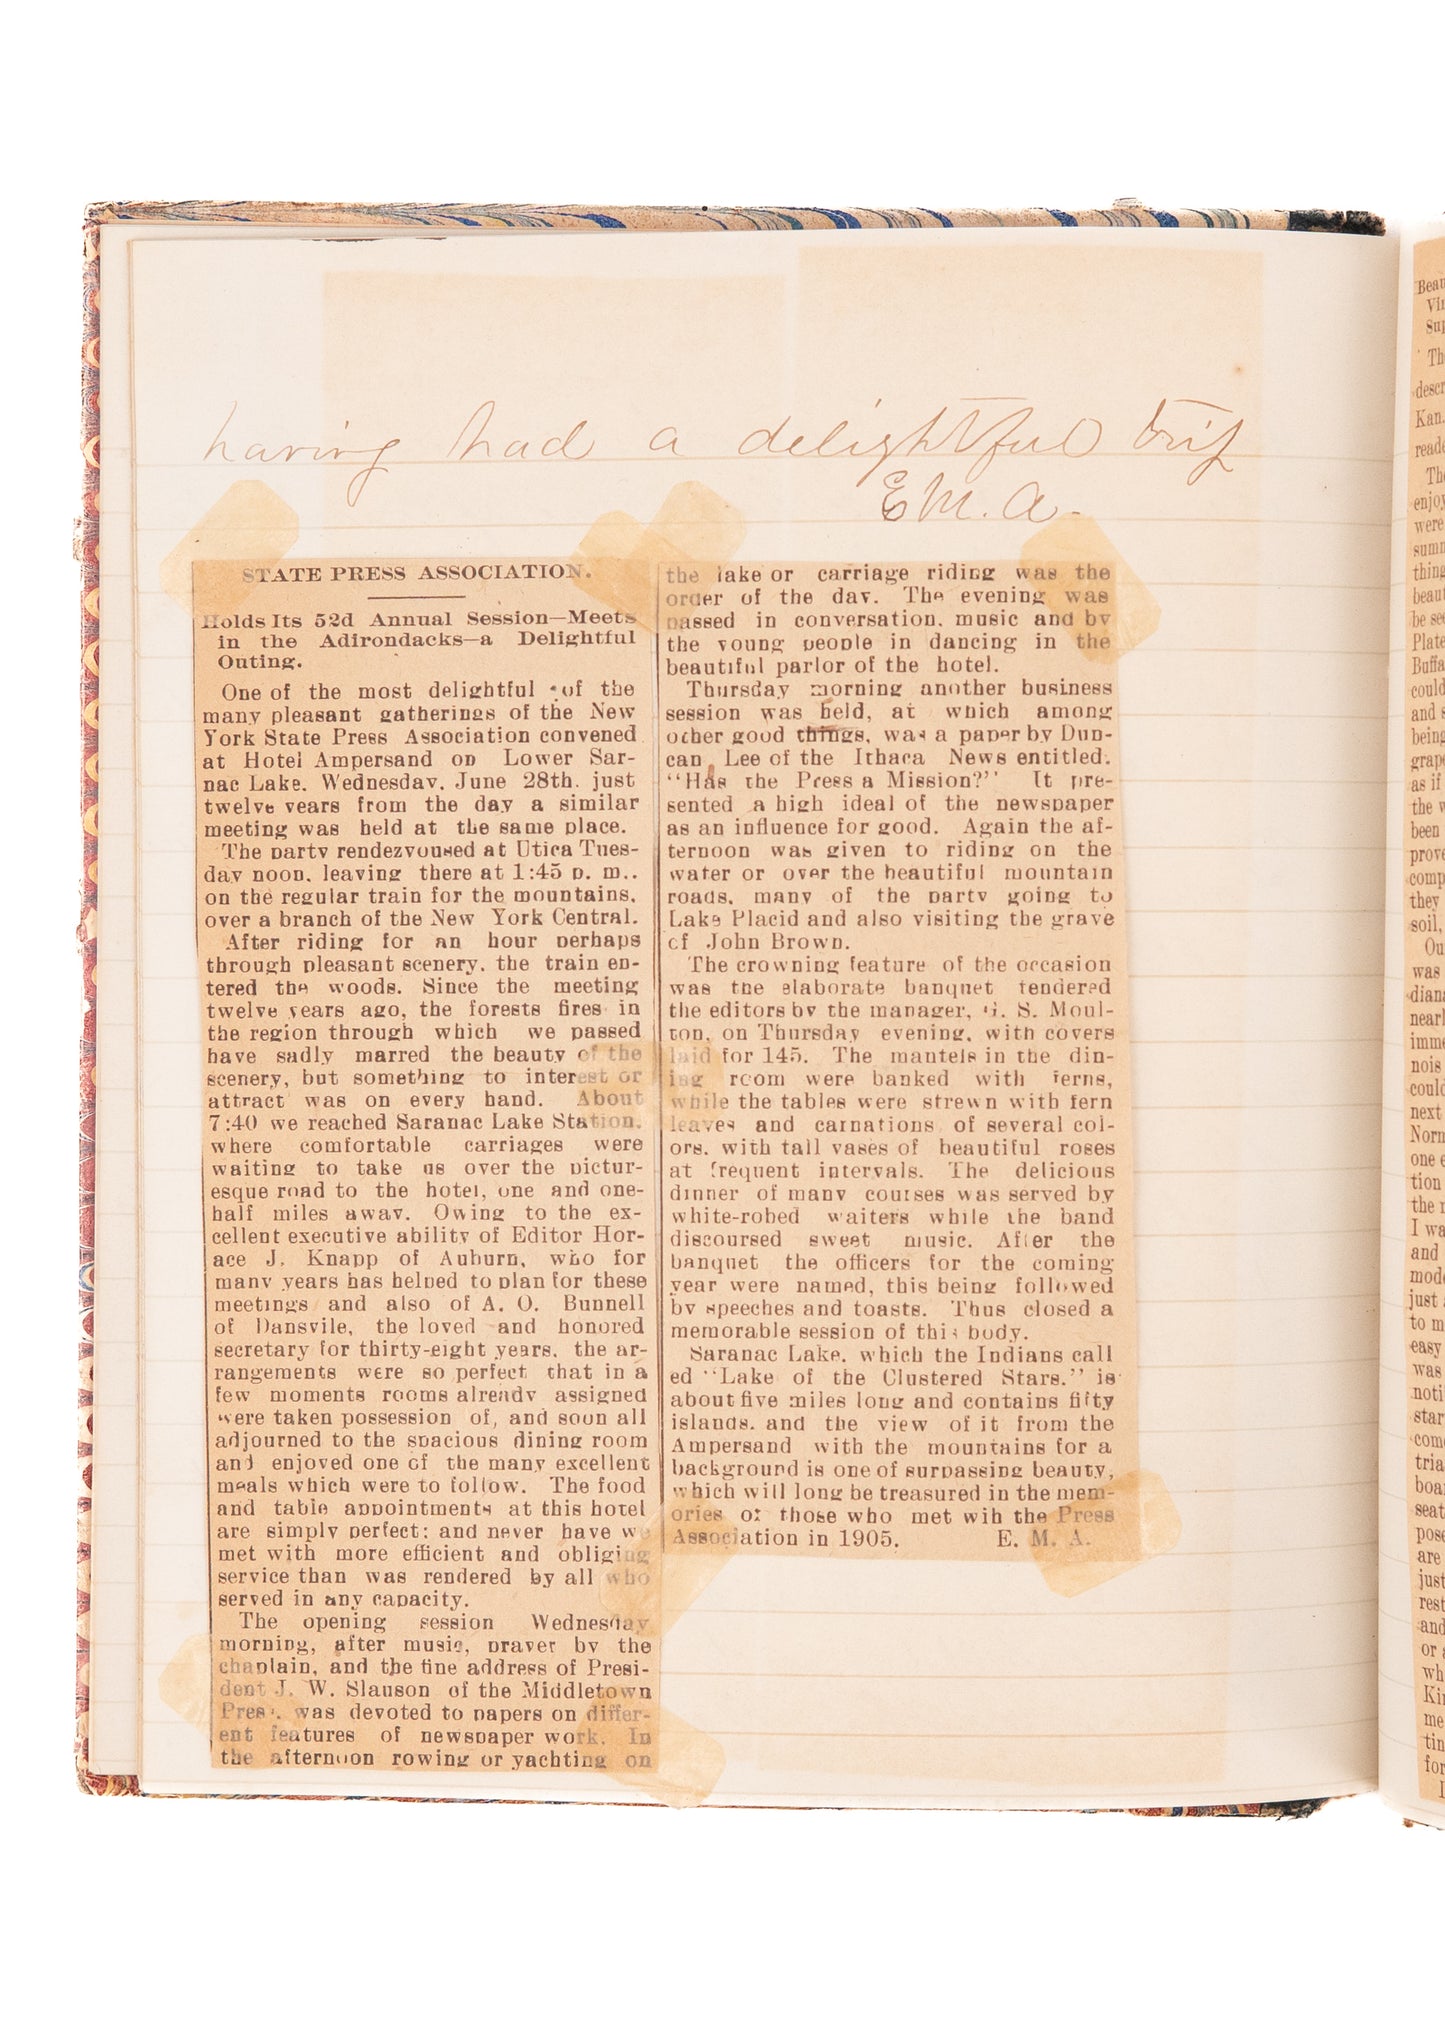 having had a delightful trip
E.M.A.
STATE PRESS ASSOCIATION.
Holds Its 52d Annual Session—Meets
in the Adirondacks—a Delightful
Outing.
One of the most delightful of the
many pleasant gatherings of the New
York State Press Association convened
at Hotel Ampersand on Lower Sar-
nac Lake, Wednesday, June 28th, just
twelve years from the day a similar
meeting was held at the same place.
The party rendezvoused at Utica Tues-
day noon, leaving there at 1:45 p. m.,
on the regular train for the mountains,
over a branch of the New York Central.
After riding for an hour perhaps
through pleasant scenery, the train en-
tered the woods. Since the meeting
twelve years ago, the forests fires in
the region through which we passed
have sadly marred the beauty of the
scenery, but something to interest or
attract was on every hand. About
7:40 we reached Saranac Lake Station,
where comfortable carriages were
waiting to take us over the pictur-
esque road to the hotel, one and one-
half miles away. Owing to the ex-
cellent executive ability of Editor Hor-
ace J. Knapp of Auburn, who for
many years has helped to plan for these
meetings and also of A. O. Bunnell
of Dansvile, the loved and honored
secretary for thirty-eight years, the ar-
rangements were so perfect that in a
few moments rooms already assigned
were taken possession of, and soon all
adjourned to the spacious dining room
and enjoyed one of the many excellent
meals which were to follow. The food
and table appointments at this hotel
are simply perfect; and never have we
met with more efficient and obliging
service than was rendered by all who
served in any capacity.
The opening session Wednesday
morning, after music, prayer by the
chaplain, and the fine address of Presi-
dent J. W. Slauson of the Middletown
Press, was devoted to papers on differ-
ent features of newspaper work. In
the afternoon rowing or yachting on
the lake or carriage riding was the
order of the day. The evening was
passed in conversation, music and by
the young people in dancing in the
beautiful parlor of the hotel.
Thursday morning another business
session was held, at which among
other good things, was a paper by Dun-
can Lee of the Ithaca News entitled,
"Has the Press a Mission?" It pre-
sented a high ideal of the newspaper
as an influence for good. Again the af-
ternoon was given to riding on the
water or over the beautiful mountain
roads, many of the party going to
Lake Placid and also visiting the grave
of John Brown.
The crowning feature of the occasion
was the elaborate banquet tendered
the editors by the manager, G. S. Moul-
ton, on Thursday evening, with covers
laid for 145. The mantels in the din-
ing room were banked with ferns,
while the tables were strewn with fern
leaves and carnations of several col-
ors, with tall vases of beautiful roses
at frequent intervals. The delicious
dinner of many courses was served by
white-robed waiters while the band
discoursed sweet music. After the
banquet the officers for the coming
year were named, this being followed
by speeches and toasts. Thus closed a
memorable session of this body.
Saranac Lake, which the Indians call
ed "Lake of the Clustered Stars," is
about five miles long and contains fifty
islands, and the view of it from the
Ampersand with the mountains for a
background is one of surpassing beauty,
which will long be treasured in the mem-
ories of those who met wih the Press
Association in 1905. E. M. A.